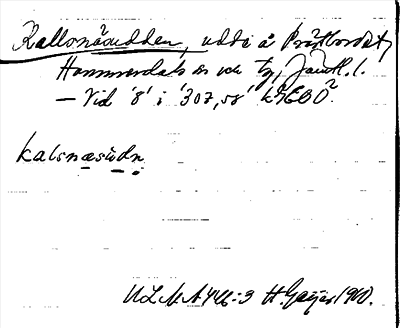 Kallsnäsudden, udde å Prästbordet,
Hammerdals sn och tg, Jämtl. l.
– Vid '8' i '307,58' k
kalsnæsùdn
ULMA 446:3 H. Geijer 1910.